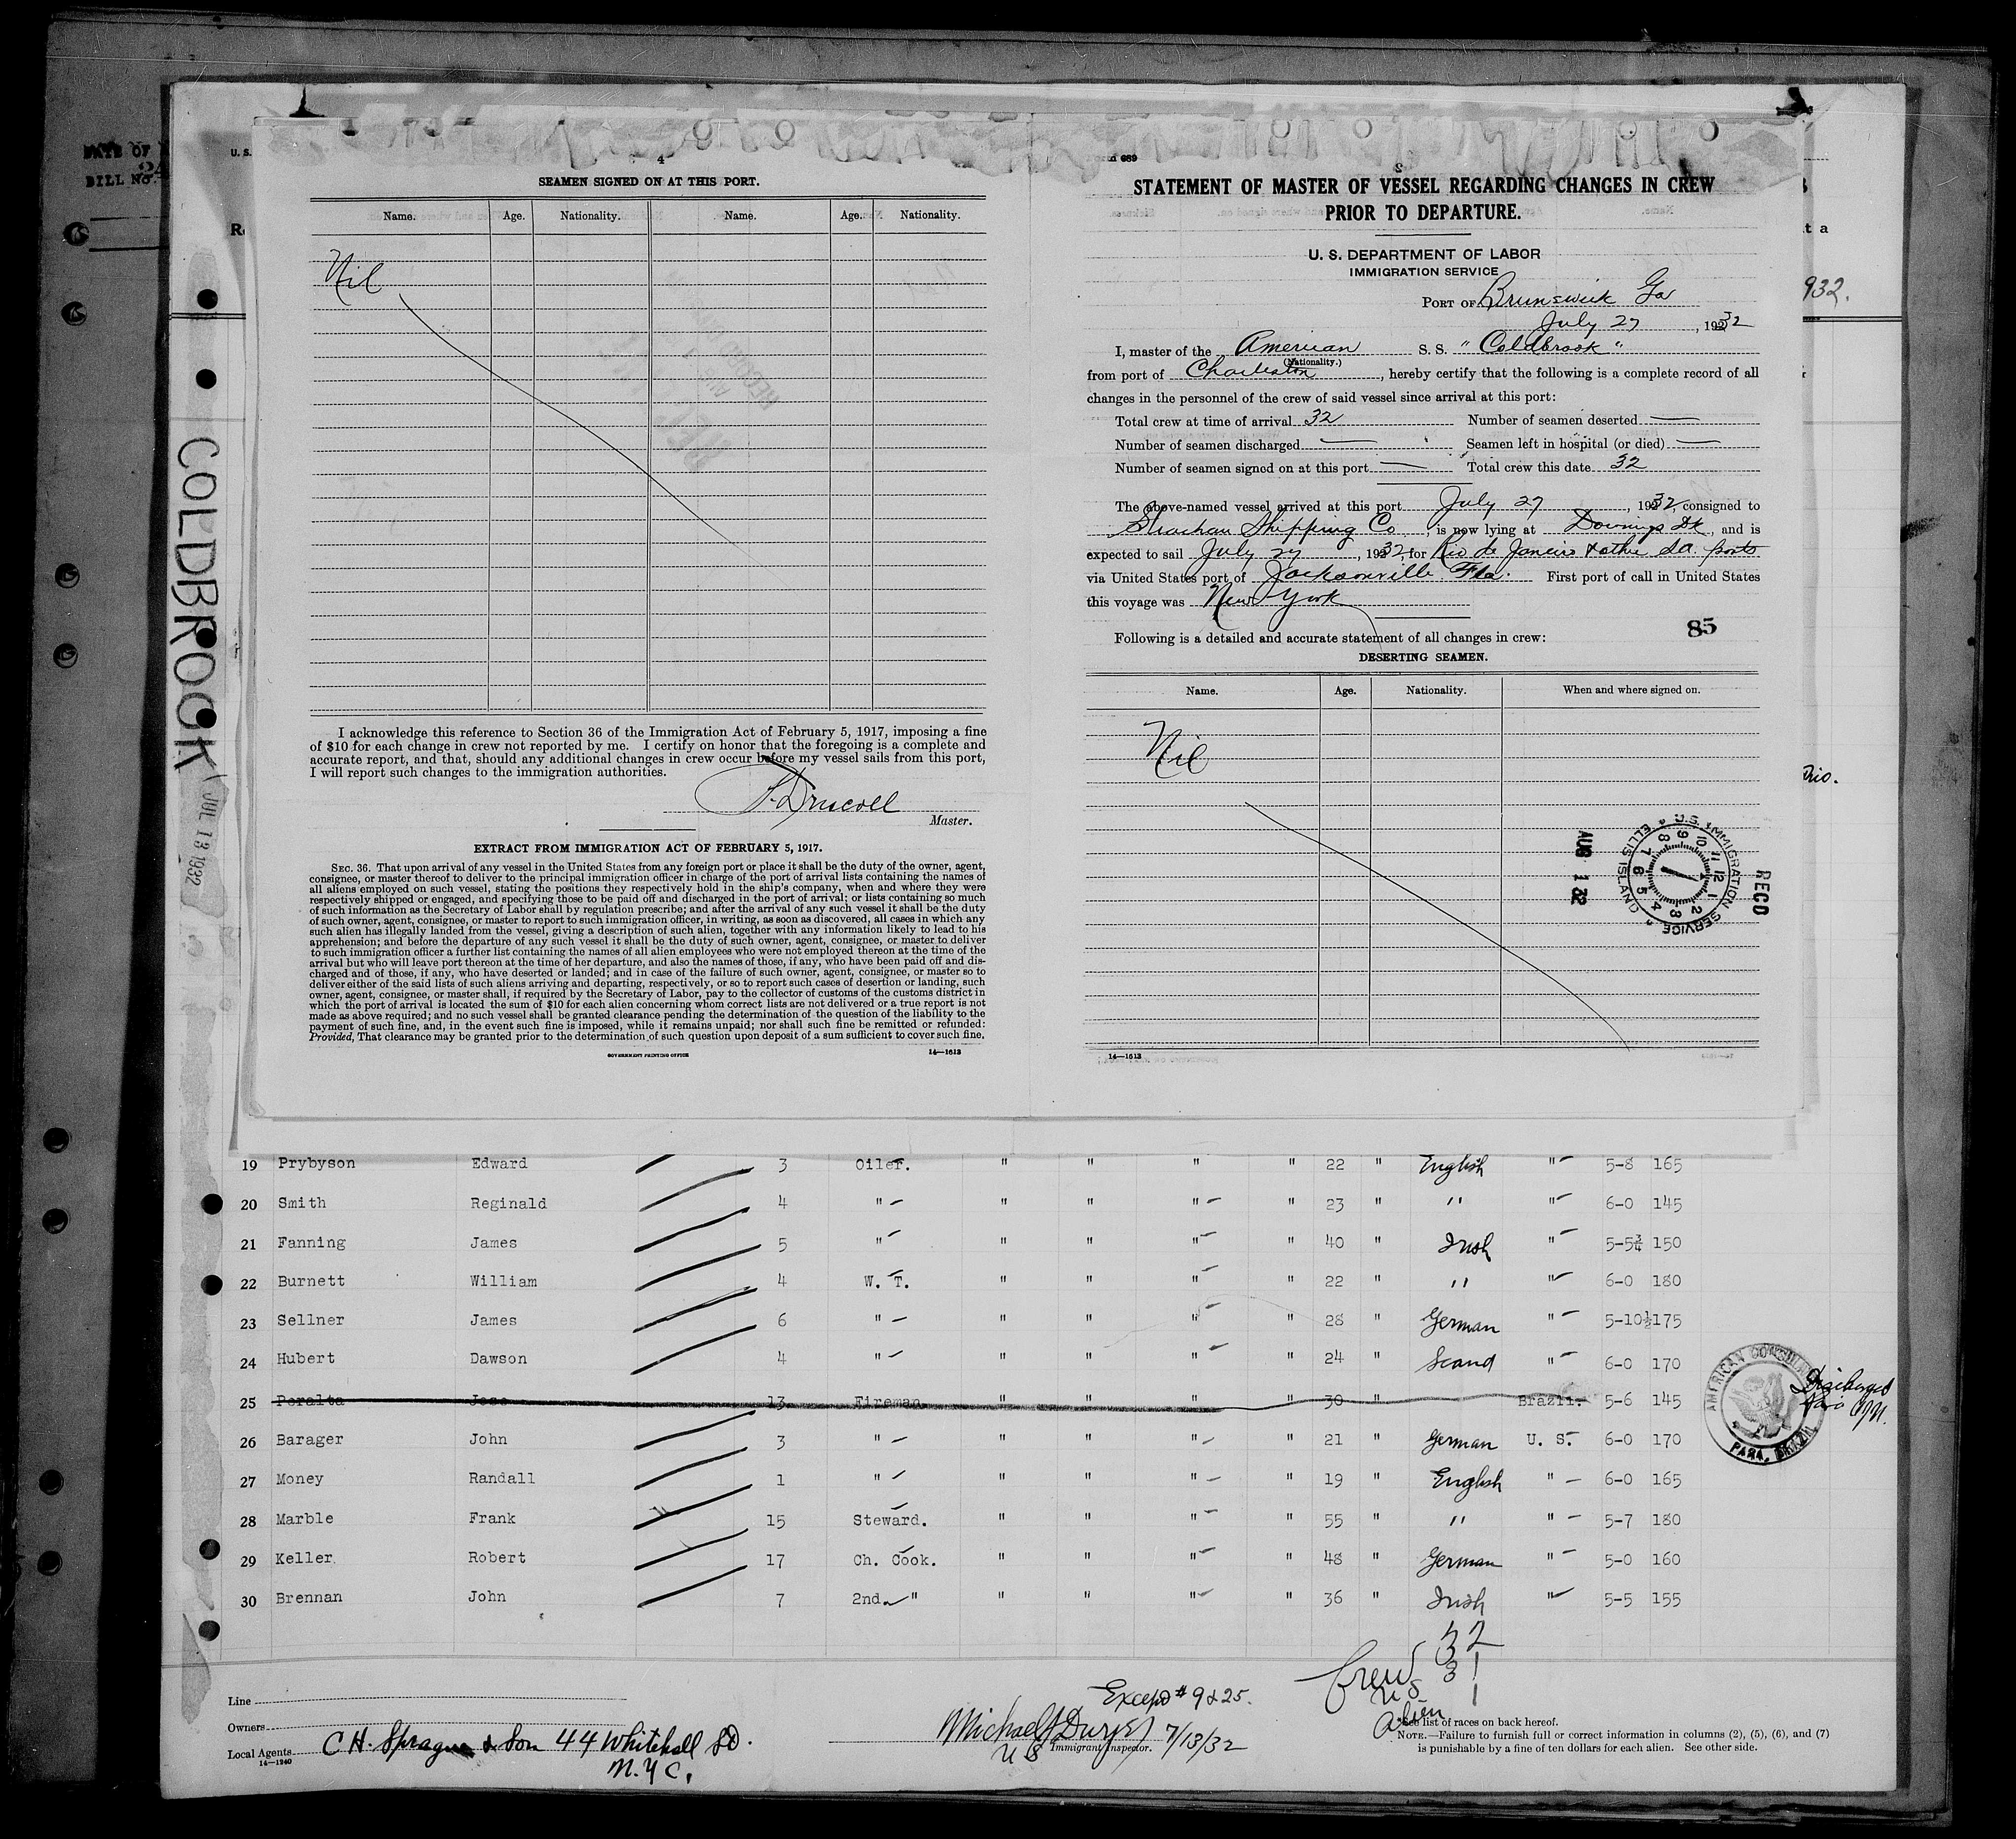 DATE OF
BILL No.
U. S.
COLDBROOK
JUL 13 1932
4
SEAMEN SIGNED ON AT THIS PORT.
Name. Age. Nationality. Name. Age. Nationality.
Nil
I acknowledge this reference to Section 36 of the Immigration Act of February 5, 1917, imposing a fine
of $10 for each change in crew not reported by me. I certify on honor that the foregoing is a complete and
accurate report, and that, should any additional changes in crew occur before my vessel sails from this port,
I will report such changes to the immigration authorities.
Driscoll
Master.
EXTRACT FROM IMMIGRATION ACT OF FEBRUARY 5, 1917.
SEC. 36. That upon arrival of any vessel in the United States from any foreign port or place it shall be the duty of the owner, agent,
consignee, or master thereof to deliver to the principal immigration officer in charge of the port of arrival lists containing the names of
all aliens employed on such vessel, stating the positions they respectively hold in the ship's company, when and where they were
respectively shipped or engaged, and specifying those to be paid off and discharged in the port of arrival; or lists containing so much
of such information as the Secretary of Labor shall by regulation prescribe; and after the arrival of any such vessel it shall be the duty
of such owner, agent, consignee, or master to report to such immigration officer, in writing, as soon as discovered, all cases in which any
such alien has illegally landed from the vessel, giving a description of such alien, together with any information likely to lead to his
apprehension; and before the departure of any such vessel it shall be the duty of such owner, agent, consignee, or master to deliver
to such immigration officer a further list containing the names of all alien employees who were not employed thereon at the time of the
arrival but who will leave port thereon at the time of her departure, and also the names of those, if any, who have been paid off and dis-
charged and of those, if any, who have deserted or landed; and in case of the failure of such owner, agent, consignee, or master so to
deliver either of the said lists of such aliens arriving and departing, respectively, or so to report such cases of desertion or landing, such
owner, agent, consignee, or master shall, if required by the Secretary of Labor, pay to the collector of customs of the customs district in
which the port of arrival is located the sum of $10 for each alien concerning whom correct lists are not delivered or a true report is not
made as above required; and no such vessel shall be granted clearance pending the determination of the question of the liability to the
payment of such fine, and, in the event such fine is imposed, while it remains unpaid; nor shall such fine be remitted or refunded:
Provided, That clearance may be granted prior to the determination of such question upon deposit of a sum sufficient to cover such fine.
GOVERNMENT PRINTING OFFICE 14—1613
689
STATEMENT OF MASTER OF VESSEL REGARDING CHANGES IN CREW
PRIOR TO DEPARTURE.
U. S. DEPARTMENT OF LABOR
IMMIGRATION SERVICE
PORT OF Brunswick Ga
July 27, 1932
I, master of the American S. S. "Coldbrook"
(Nationality.)
from port of Charleston, hereby certify that the following is a complete record of all
changes in the personnel of the crew of said vessel since arrival at this port:
Total crew at time of arrival 32 Number of seamen deserted —
Number of seamen discharged — Seamen left in hospital (or died) —
Number of seamen signed on at this port — Total crew this date 32
The above-named vessel arrived at this port July 27, 1932, consigned to
Strachan Shipping Co, is now lying at Downings Dk, and is
expected to sail July 27, 1932, for Rio de Janeiro & other SA. ports
via United States port of Jacksonville Fla. First port of call in United States
this voyage was New York
85
Following is a detailed and accurate statement of all changes in crew:
DESERTING SEAMEN.
Name. Age. Nationality. When and where signed on.
Nil
AUG 1 32
U.S. IMMIGRATION SERVICE ELLIS ISLAND
RECD
14—1613
t a
932.
19 Prybyson Edward 3 Oiler. " " " " 22 " English " 5-8 165
20 Smith Reginald 4 " " " " " 23 " " " 6-0 145
21 Fanning James 5 " " " " " 40 " Irish " 5-5¾ 150
22 Burnett William 4 W. T. " " " " 22 " " " 6-0 180
23 Sellner James 6 " " " " " 28 " German " 5-10½ 175
24 Hubert Dawson 4 " " " " " 24 " Scand " 6-0 170
25 Peralta Jose 13 Fireman " " " " 30 " Brazil. 5-6 145
26 Barager John 3 " " " " " 21 " German U. S. 6-0 170
27 Money Randall 1 " " " " " 19 " English " 6-0 165
28 Marble Frank 15 Steward. " " " " 55 " " " 5-7 180
29 Keller Robert 17 Ch. Cook. " " " " 48 " German " 5-0 160
30 Brennan John 7 2nd " " " " " 36 " Irish " 5-5 155
AMERICAN CONSULATE
PARA, BRAZIL
Discharged
Crew 32
US 31
Alien 1
Except # 9 & 25.
Line
Owners
Local Agents C H. Sprague & Son 44 Whitehall St.
N. Y C.
14—1240
7/13/32
U S Immigrant Inspector.
See list of races on back hereof.
NOTE.—Failure to furnish full or correct information in columns (2), (5), (6), and (7)
is punishable by a fine of ten dollars for each alien. See other side.